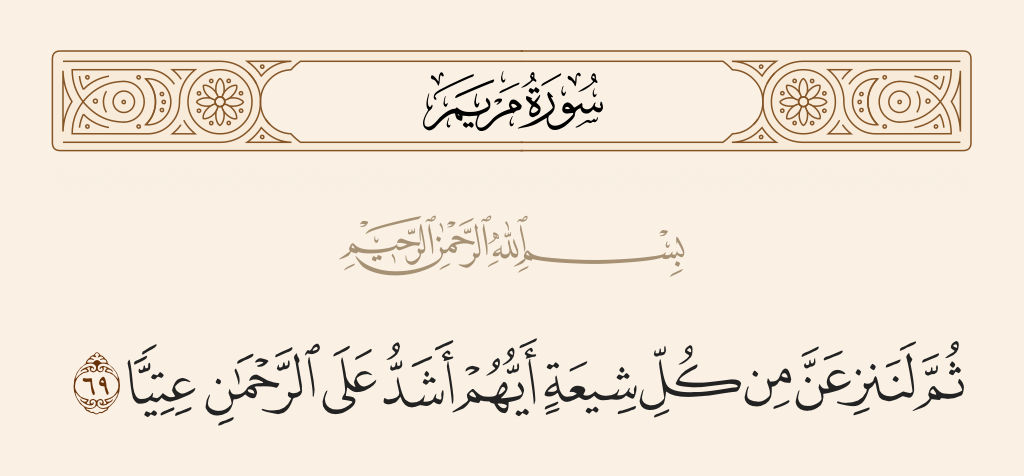 سُورَةُ مَرْيَمَ
بِسْمِ ٱللَّهِ ٱلرَّحْمَٰنِ ٱلرَّحِيمِ
ثُمَّ لَنَنزِعَنَّ مِن كُلِّ شِيعَةٍ أَيُّهُمْ أَشَدُّ عَلَى ٱلرَّحْمَٰنِ عِتِيًّا ٦٩